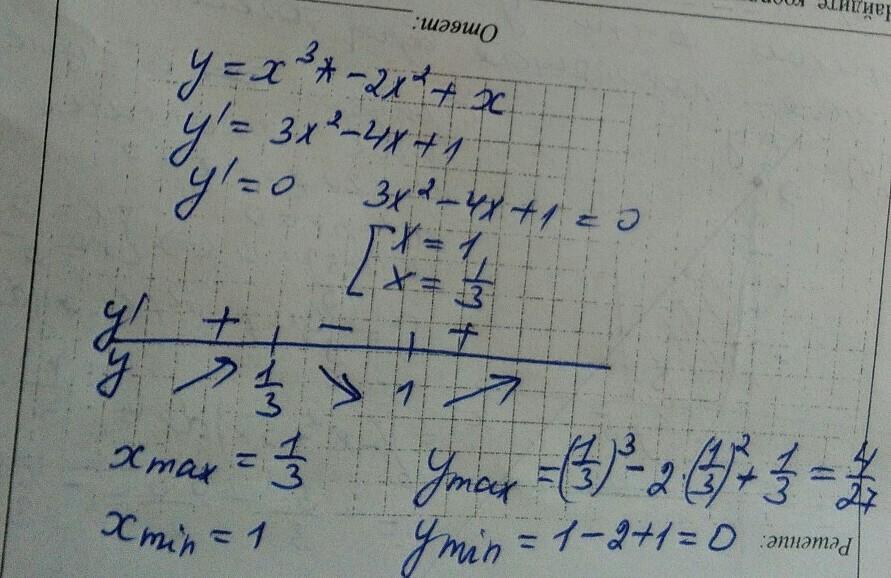 Найдите коор
Ответ:
y = x³ - 2x² + x
y' = 3x² - 4x + 1
y' = 0 3x² - 4x + 1 = 0
[ x = 1
x = 1/3
y' + - +
y ↗ 1/3 ↘ 1 ↗
x max = 1/3 y max = (1/3)³ - 2·(1/3)² + 1/3 = 4/27
x min = 1 y min = 1 - 2 + 1 = 0
Решение: